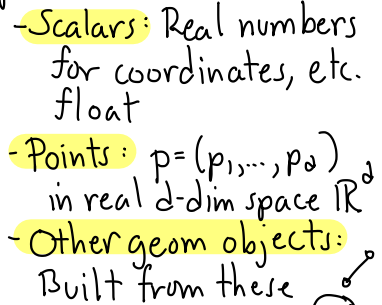 -Scalars: Real numbers
for coordinates, etc.
float
-Points: p=(p₁,..., p_d)
in real d-dim space ℝᵈ
-Other geom objects:
Built from these